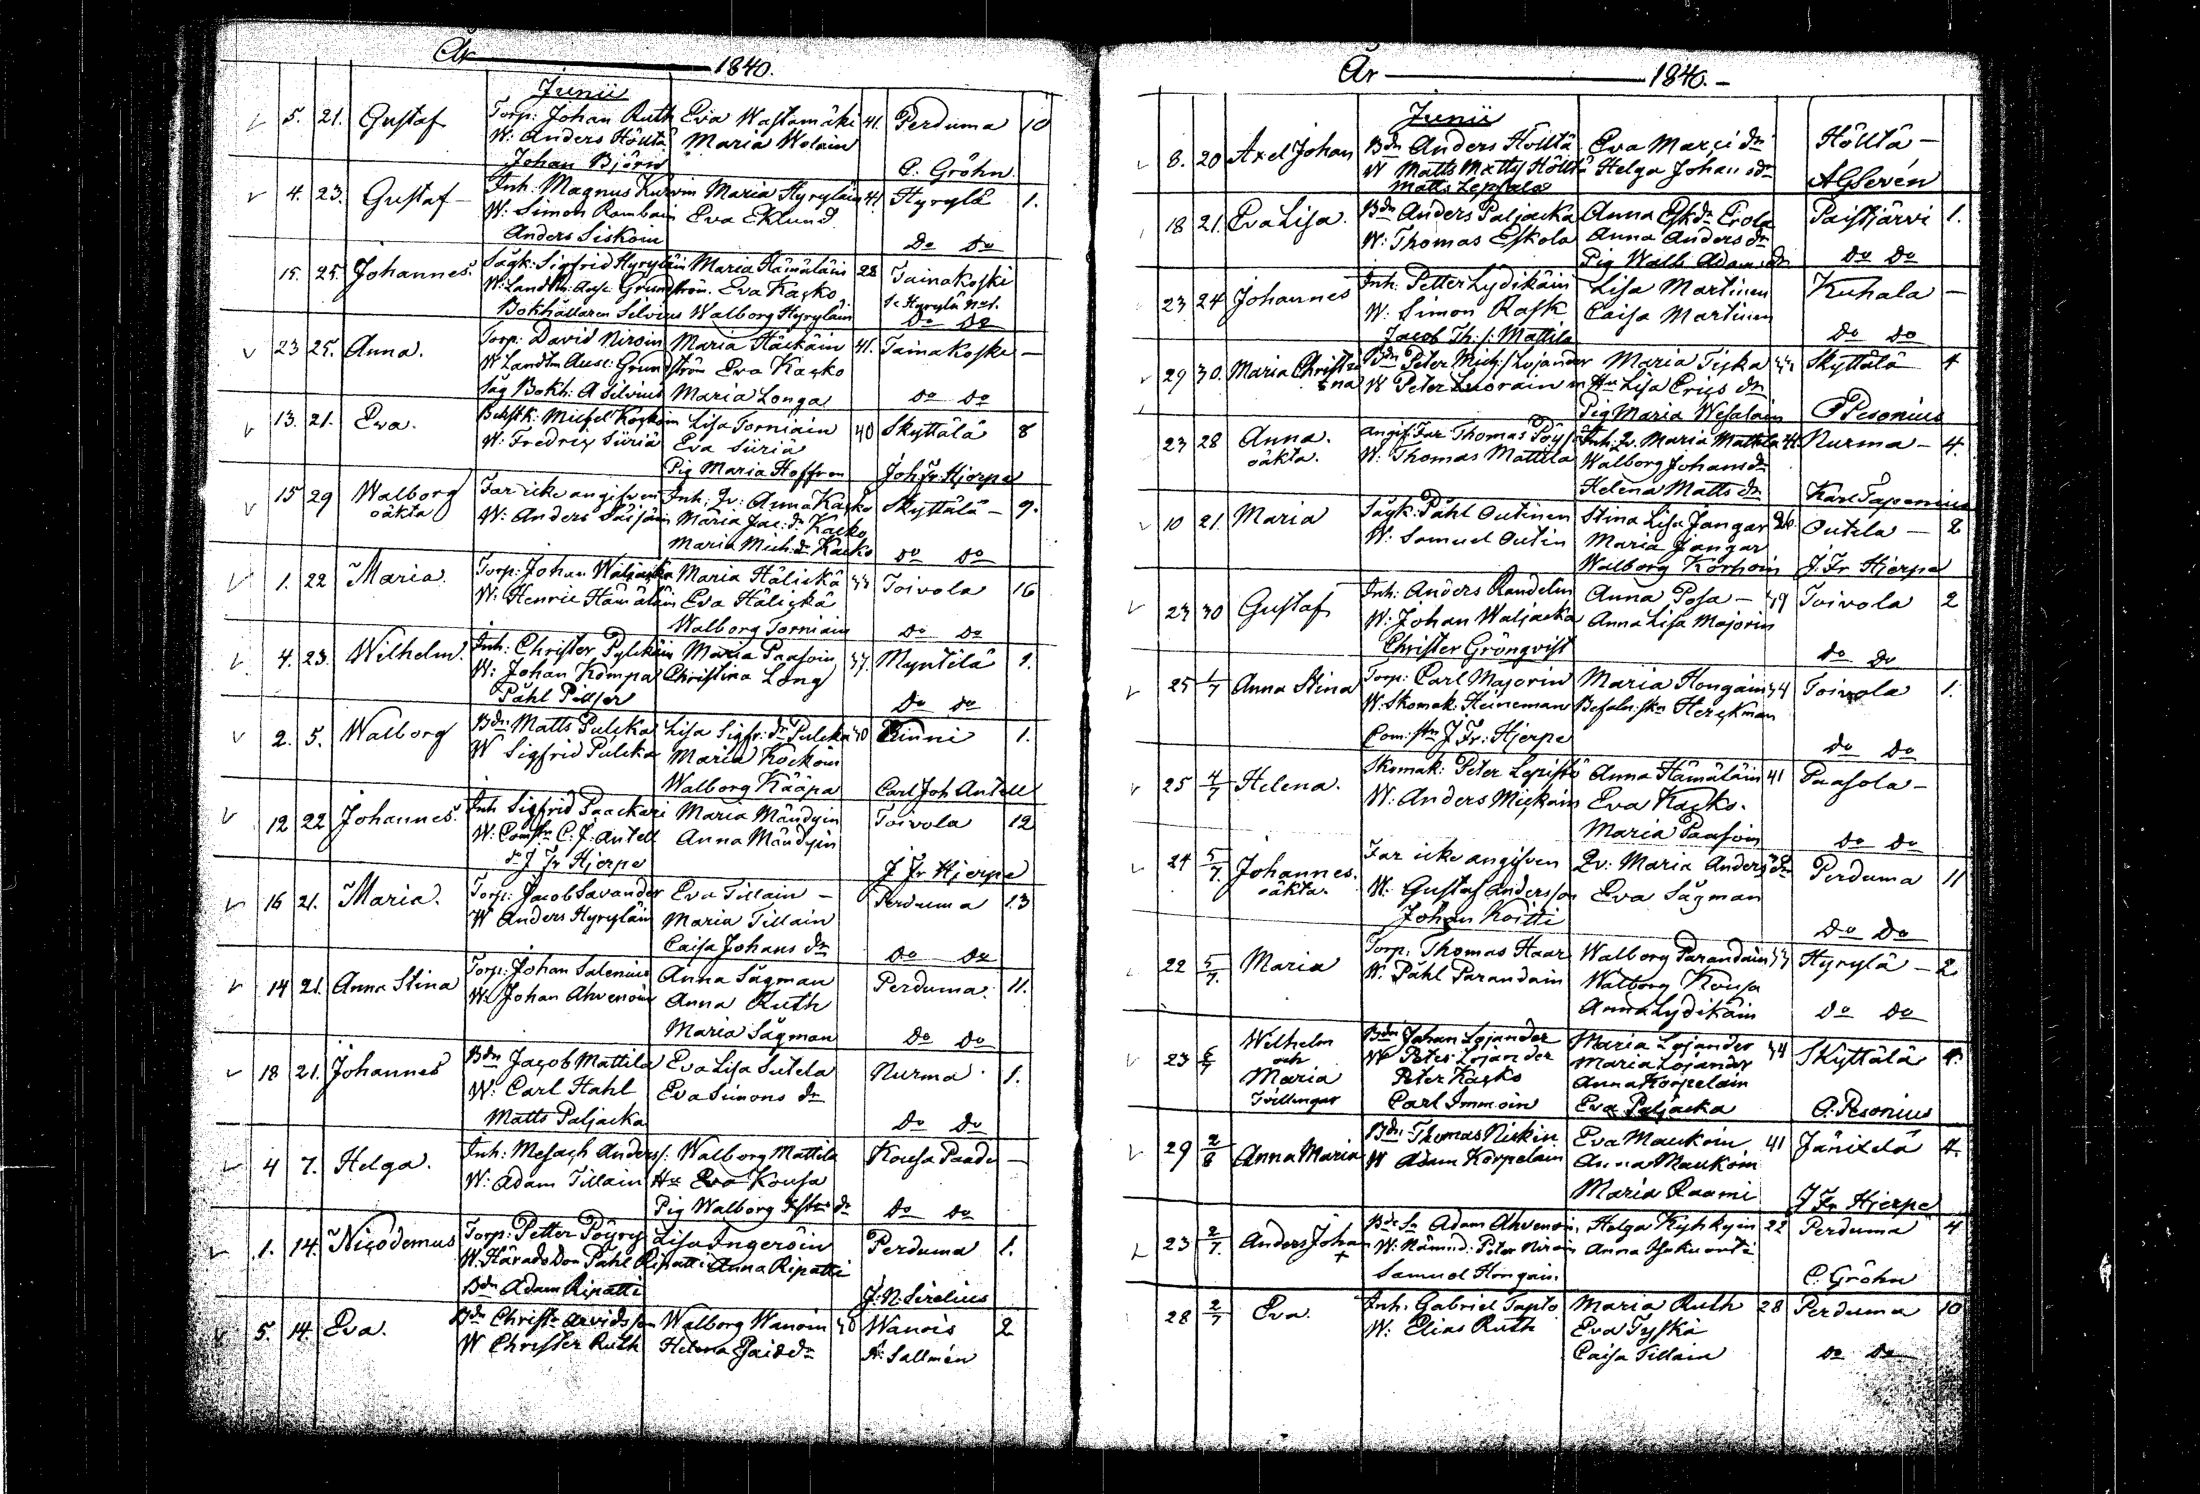 År 1840.
Junii
5. 21. Gustaf Torp: Johan Ruth Eva Wastamäki 41. Perduma 10
W: Anders Höltta Maria Wolain
Johan Björn C. Gröhn
4. 23. Gustaf Inh: Magnus Kurwin Maria Hyryläin 41. Hyrylä 1.
W: Simon Rambain Eva Eklund
Anders Siskoin Do Do
15. 25. Johannes. Sågk: Sigfrid Hyryläin Maria Hämäläin 28 Tainakoski
W: Landtm: Ausc: Grundström. Eva Kacko
Bokhållaren Silvius Walborg Hyryläin Do Do
23 25. Anna. Torp: David Niroin Maria Häckäin 41. Tainakoski —
W Landtm Ausc: Grundström Eva Kacko
Bokh: A Silvius Maria Longa Do Do
13. 21. Eva. Michel Koskoin Lisa Torniain 40 Skyttälä 8
W: Fredric Siiriä Eva Siiriä
Pig Maria Hoffren Joh Fr: Hjerpe
15 29 Walborg Far icke angifven Inh: Qv: Anna Kacko Skyttälä — 9.
oäkta W: Anders Säijäin Maria Jac: dr Kacko
Maria Mich: dr Kacko Do Do
1. 22 Maria. Torp: Johan Waljacka Maria Hälickä 33 Toivola 16
W: Henric Hämäläin Eva Hälickä
Walborg Torniain Do Do
4. 23. Wilhelm. Inh: Christer Pylckäin Maria Paasoin 37. Myntilä 1.
W: Johan Kömpa Christina Long
Påhl Pillser Do Do
2. 5. Walborg Bdn Matts Pulcka Lisa Sigfr: dr Pulcka 30 Rinni 1.
W Sigfrid Pulcka Maria Kockoin
Walborg Kääpä Carl Joh Antell
12 22 Johannes. Inh Sigfrid Paackari Maria Mändyin Toivola 12
W: C. J. Antell Anna Mändyin
J Fr Hjerpe J Fr Hjerpe
16 21. Maria. Torp: Jacob Savander Eva Tillain — Perduma 13
W Anders Hyryläin Maria Tillain
Caisa Johans dr Do Do
14 21. Anna Stina Torp: Johan Salenius Anna Sågman Perduma. 11.
W: Johan Ahvenoin Anna Ruth
Maria Sågman Do Do
18 21. Johannes Bdn Jacob Mattila Eva Lisa Sutela Nurma 1.
W: Carl Stahl Eva Simons dr
Matts Paljacka Do Do
4 7. Helga. Inh: Mesach Anders s. Walborg Mattila Kousa Paade —
W: Adam Tillain Hu Eva Kousa
Pig Walborg dr Do Do
1. 14. Nicodemus Torp: Petter Pöyry Lisa Ingeröin Perduma 1.
W. Härads Dom Påhl Ripatti Anna Ripatti
Bdn Adam Ripatti J: N: Sirelius
5. 14. Eva. Bdn Christr Arvidsson Walborg Wanoin 30 Wanois 2
W Christer Ruth Helena dr A: Sallmén
År 1840. —
Junii
8. 20 Axel Johan Bdn Anders Höltta Eva Marci dr Höltta —
W Matts Matts s Höltta Helga Johans dr
Matts Leppala AG Serén
18 21. Eva Lisa. Bdn Anders Paljacka Anna Esk dr Erola Paistjärvi 1.
W: Thomas Eskola Anna Anders dr
Pig Walb Adams dr Do Do
23 24 Johannes Inh: Petter Lydikäin Lisa Martinen Kuhala —
W: Simon Rask Caisa Martinen
Jacob Th: s: Mattila Do Do
29 30. Maria Christina Bdn Peter Mich: s Lojander Maria Tyska 34 Skyttälä 4
W Peter Luorain Hu Lisa Erics dr
Pig Maria Wesalain Pesonius
23 28 Anna. Angif: Far Thomas Pöys Inh: Qv. Maria Mattila 41. Nurma — 4.
oäkta. W: Thomas Mattila Walborg Johans dr
Helena Matts dr Karl Saponius
10 21. Maria Sågk: Påhl Outinen Stina Lisa Jangar 26. Outila — 2
W: Samuel Outin Maria Jangar
Walborg Korhoin J: Fr Hjerpe
23 30 Gustaf Inh: Anders Randelin Anna Posa — 39 Toivola 2
W: Johan Waljacka Anna Lisa Majorin
Christer Grönqvist Do Do
25 1/7 Anna Stina Torp: Carl Majorin Maria Hongain 34 Toivola 1.
W. Skomak: Heineman Herckman
J Fr: Hjerpe Do Do
25 4/7 Helena. Skomak: Peter Lepistö Anna Hämäläin 41 Paasola —
W: Anders Mickäin Eva Kacko.
Maria Paasoin Do Do
24 5/7. Johannes. Far icke angifven Qv: Maria Anders dr Perduma 11
oäkta. W: Gustaf Andersson Eva Sågman
Johan Koitti Do Do
22 5/7. Maria Torp: Thomas Haar Walborg Parandain 33 Hyrylä — 2
W: Påhl Parandain Walborg Kousa
Anna Lydikäin Do Do
23 6/7 Wilhelm Bdn Johan Lojander Maria Lojander 34 Skyttälä 4.
och W Peter Lojander Maria Lojander
Maria Peter Kacko Anna Korpelain
Tvillingar Carl Immoin Eva Paljacka O. Pesonius
29 2/8 Anna Maria Bdn Thomas Niskin Eva Maukoin 41 Jänitelä 4.
W Adam Korpelain Anna Maukoin
Maria Raami J Fr Hjerpe
23 2/7. Anders Johan Bde Sn Adam Ahvenoin Helga Kyhkyin 22 Perduma 4
+ W: Nämnd: Peter Niroin Anna
Samuel Hongain. C. Gröhn
28 2/7 Eva. Inh: Gabriel Tapio Maria Ruth 28 Perduma 10
W: Elias Ruth Eva Tyskä
Caisa Tillain Do Do